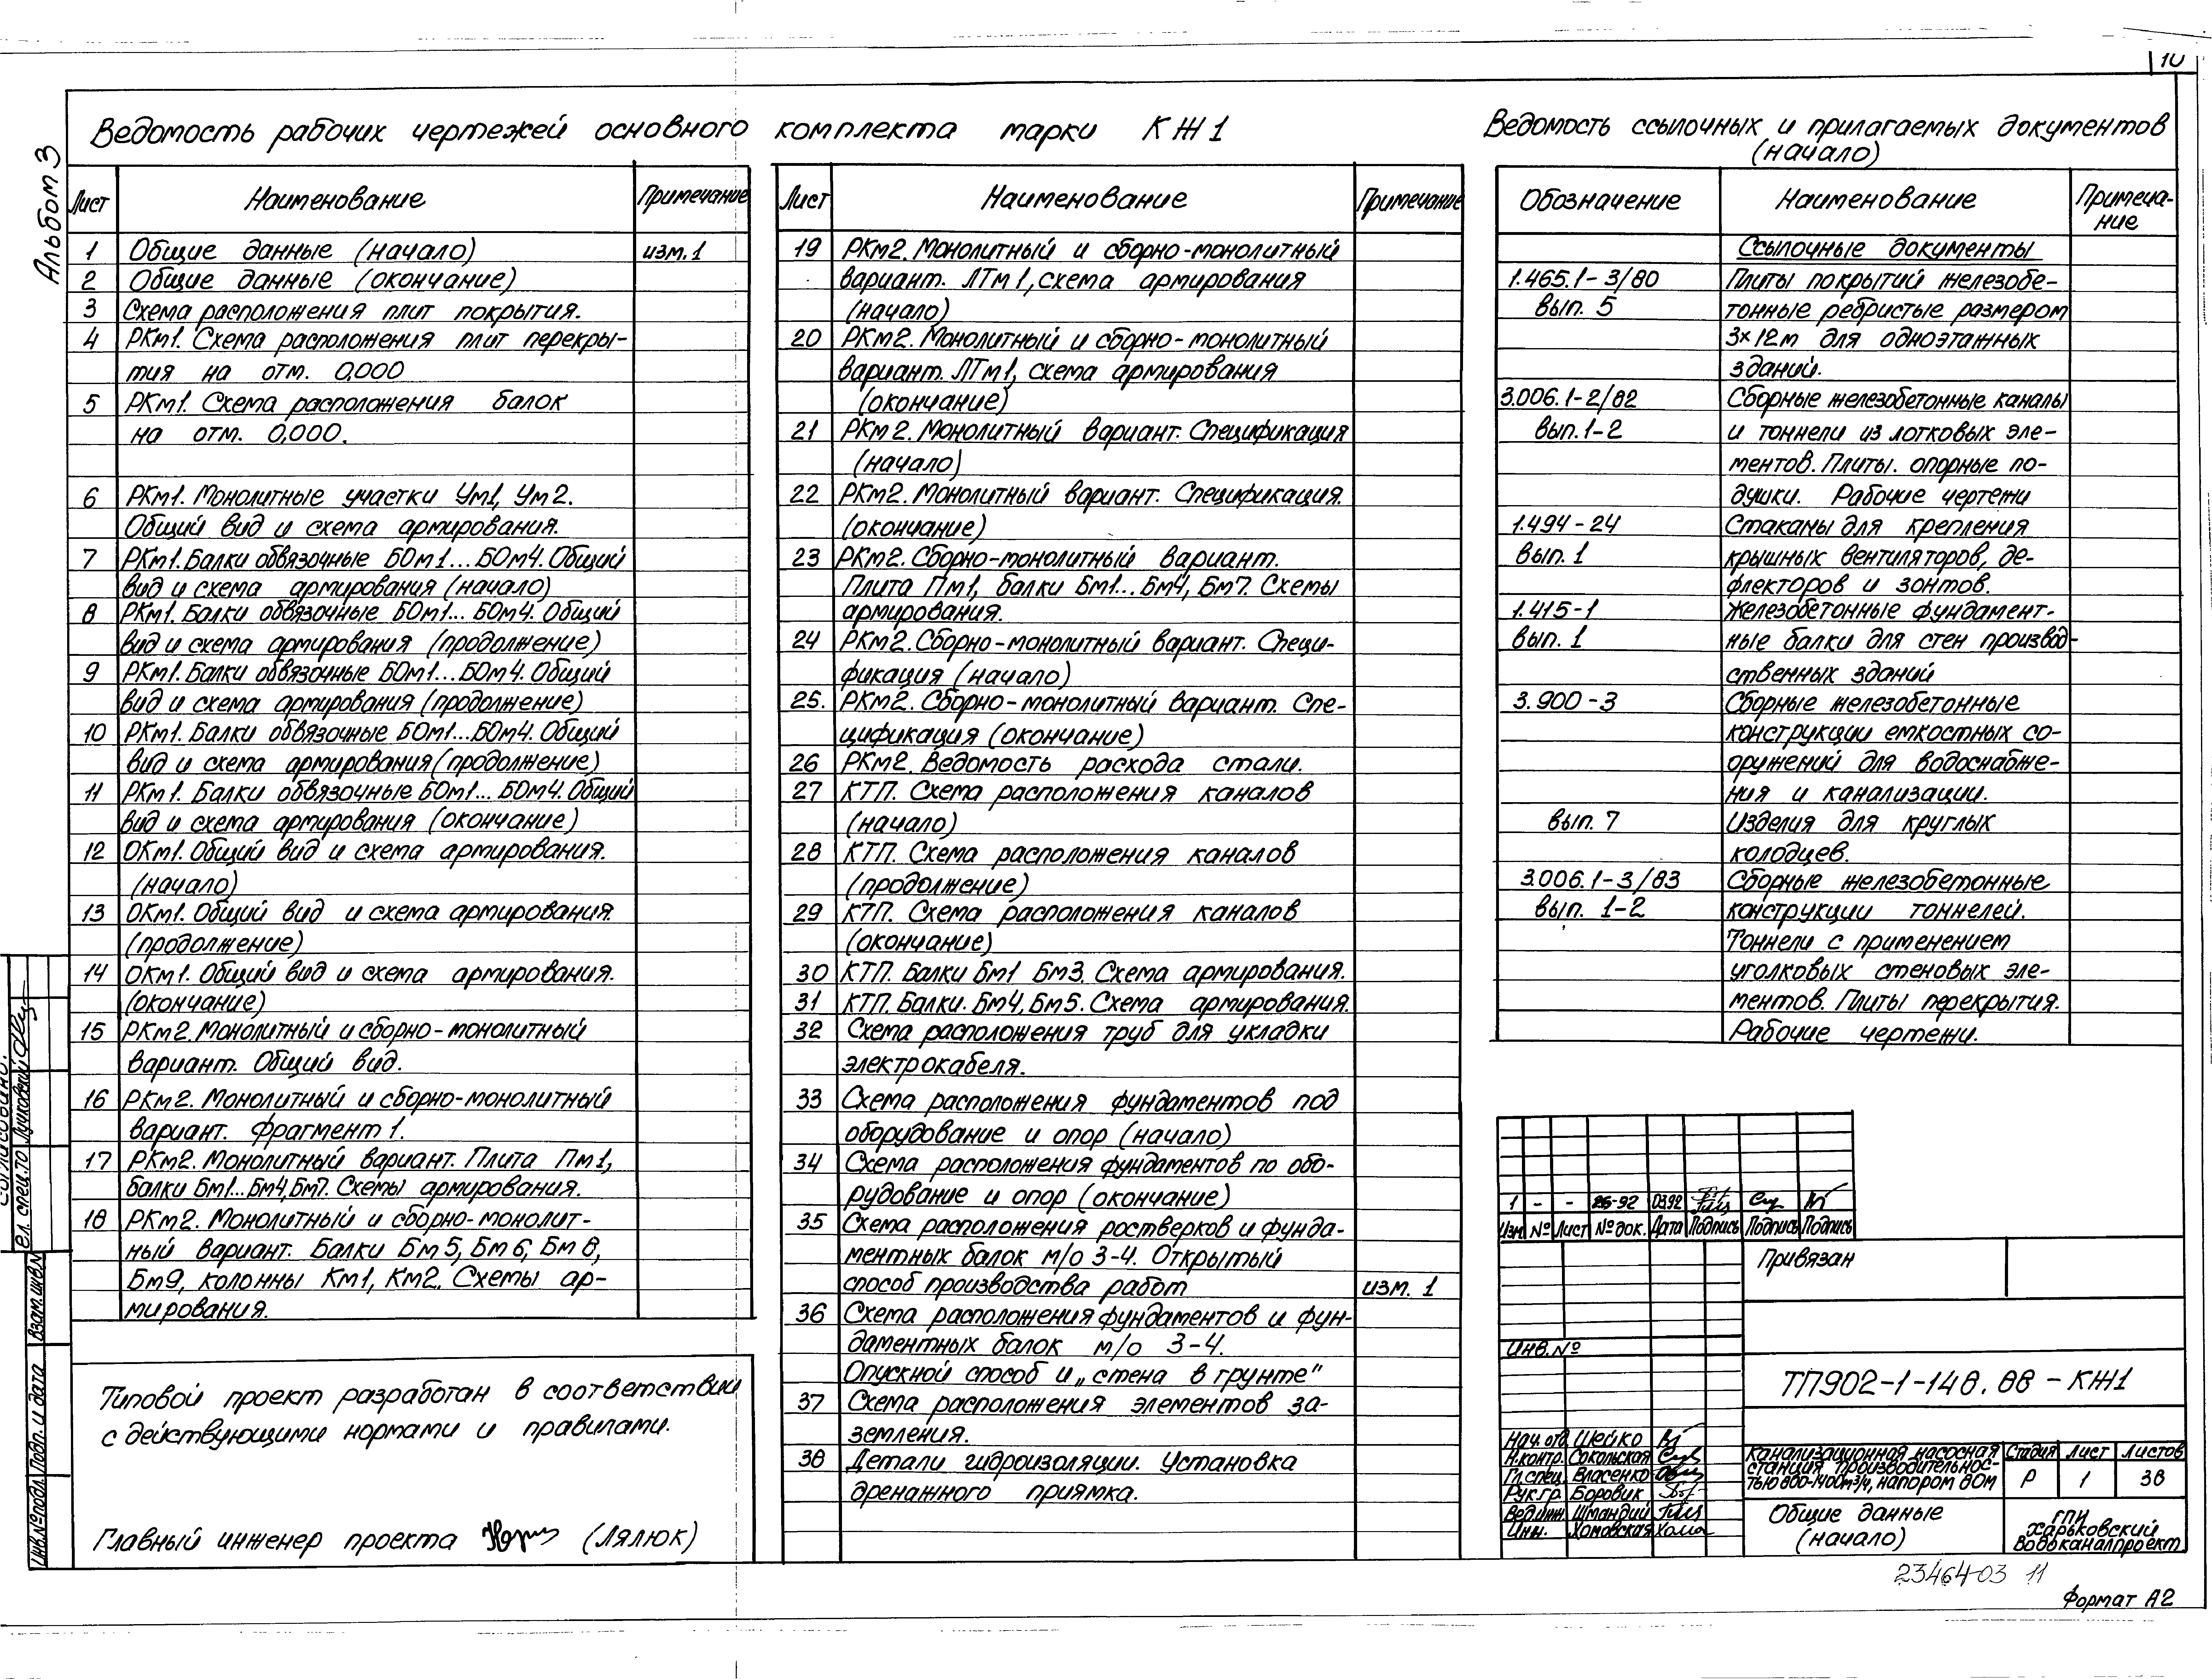 10
Альбом 3
Ведомость рабочих чертежей основного комплекта марки КЖ1
Лист Наименование Примечание
1 Общие данные (начало) изм. 1
2 Общие данные (окончание)
3 Схема расположения плит покрытия.
4 РКм1. Схема расположения плит перекры-
тия на отм. 0,000
5 РКм1. Схема расположения балок
на отм. 0,000.
6 РКм1. Монолитные участки Ум1, Ум2.
Общий вид и схема армирования.
7 РКм1. Балки обвязочные БОм1...БОм4. Общий
вид и схема армирования (начало)
8 РКм1. Балки обвязочные БОм1... БОм4. Общий
вид и схема армирования (продолжение)
9 РКм1. Балки обвязочные БОм1...БОм4. Общий
вид и схема армирования (продолжение)
10 РКм1. Балки обвязочные БОм1...БОм4. Общий
вид и схема армирования (продолжение)
11 РКм1. Балки обвязочные БОм1... БОм4. Общий
вид и схема армирования (окончание)
12 ОКм1. Общий вид и схема армирования.
(начало)
13 ОКм1. Общий вид и схема армирования.
(продолжение)
14 ОКм1. Общий вид и схема армирования.
(окончание)
15 РКм2. Монолитный и сборно-монолитный
вариант. Общий вид.
16 РКм2. Монолитный и сборно-монолитный
вариант. Фрагмент 1.
17 РКм2. Монолитный вариант. Плита Пм1,
балки Бм1...Бм4, Бм7. Схемы армирования.
18 РКм2. Монолитный и сборно-монолит-
ный вариант. Балки Бм5, Бм6, Бм8,
Бм9, колонны Км1, Км2. Схемы ар-
мирования.
Типовой проект разработан в соответствии
с действующими нормами и правилами.
Главный инженер проекта (Лялюк)
Лист Наименование Примечание
19 РКм2. Монолитный и сборно-монолитный
вариант. ЛТм1, схема армирования
(начало)
20 РКм2. Монолитный и сборно-монолитный
вариант. ЛТм1, схема армирования
(окончание)
21 РКм2. Монолитный вариант. Спецификация
(начало)
22 РКм2. Монолитный вариант. Спецификация.
(окончание)
23 РКм2. Сборно-монолитный вариант.
Плита Пм1, балки Бм1...Бм4, Бм7. Схемы
армирования.
24 РКм2. Сборно-монолитный вариант. Специ-
фикация (начало)
25. РКм2. Сборно-монолитный вариант. Спе-
цификация (окончание)
26 РКм2. Ведомость расхода стали.
27 КТП. Схема расположения каналов
(начало)
28 КТП. Схема расположения каналов
(продолжение)
29 КТП. Схема расположения каналов
(окончание)
30 КТП. Балки Бм1 Бм3. Схема армирования.
31 КТП. Балки. Бм4, Бм5. Схема армирования.
32 Схема расположения труб для укладки
электрокабеля.
33 Схема расположения фундаментов под
оборудование и опор (начало)
34 Схема расположения фундаментов по обо-
рудование и опор (окончание)
35 Схема расположения ростверков и фунда-
ментных балок м/о 3-4. Открытый
способ производства работ изм. 1
36 Схема расположения фундаментов и фун-
даментных балок м/о 3-4.
Опускной способ и „стена в грунте"
37 Схема расположения элементов за-
земления.
38 Детали гидроизоляции. Установка
дренажного приямка.
Ведомость ссылочных и прилагаемых документов
(начало)
Обозначение Наименование Примеча-
ние
Ссылочные документы
1.465.1-3/80 Плиты покрытий железобе-
вып. 5 тонные ребристые размером
3×12м для одноэтажных
зданий.
3.006.1-2/82 Сборные железобетонные каналы
вып. 1-2 и тоннели из лотковых эле-
ментов. Плиты. опорные по-
душки. Рабочие чертежи
1.494-24 Стаканы для крепления
вып. 1 крышных вентиляторов, де-
флекторов и зонтов.
1.415-1 Железобетонные фундамент-
вып. 1 ные балки для стен производ-
ственных зданий
3.900-3 Сборные железобетонные
конструкции емкостных со-
оружений для водоснабже-
ния и канализации.
вып. 7 Изделия для круглых
колодцев.
3.006.1-3/83 Сборные железобетонные
вып. 1-2 конструкции тоннелей.
Тоннели с применением
уголковых стеновых эле-
ментов. Плиты перекрытия.
Рабочие чертежи.
1 - - 26-92 03.92
Изм № Лист № док. Дата Подпись Подпись Подпись
Привязан
Инв. №
ТП902-1-148.88 - КЖ1
Нач. отд Шейко
Н.контр. Сокольская
Гл.спец. Власенко
Рук.гр. Боровик
Вед.инж. Шмандий
Инж. Хомовская
Канализационная насосная
станция производительнос-
тью 800-1400м³/ч, напором 80м
Стадия Лист Листов
Р 1 38
Общие данные
(начало)
ГПИ
Харьковский
Водоканалпроект
23464-03 11
Формат А2
Согласовано:
Гл. спец. ТО Луковский
Взам. инв. №
Подп. и дата
Инв. № подл.